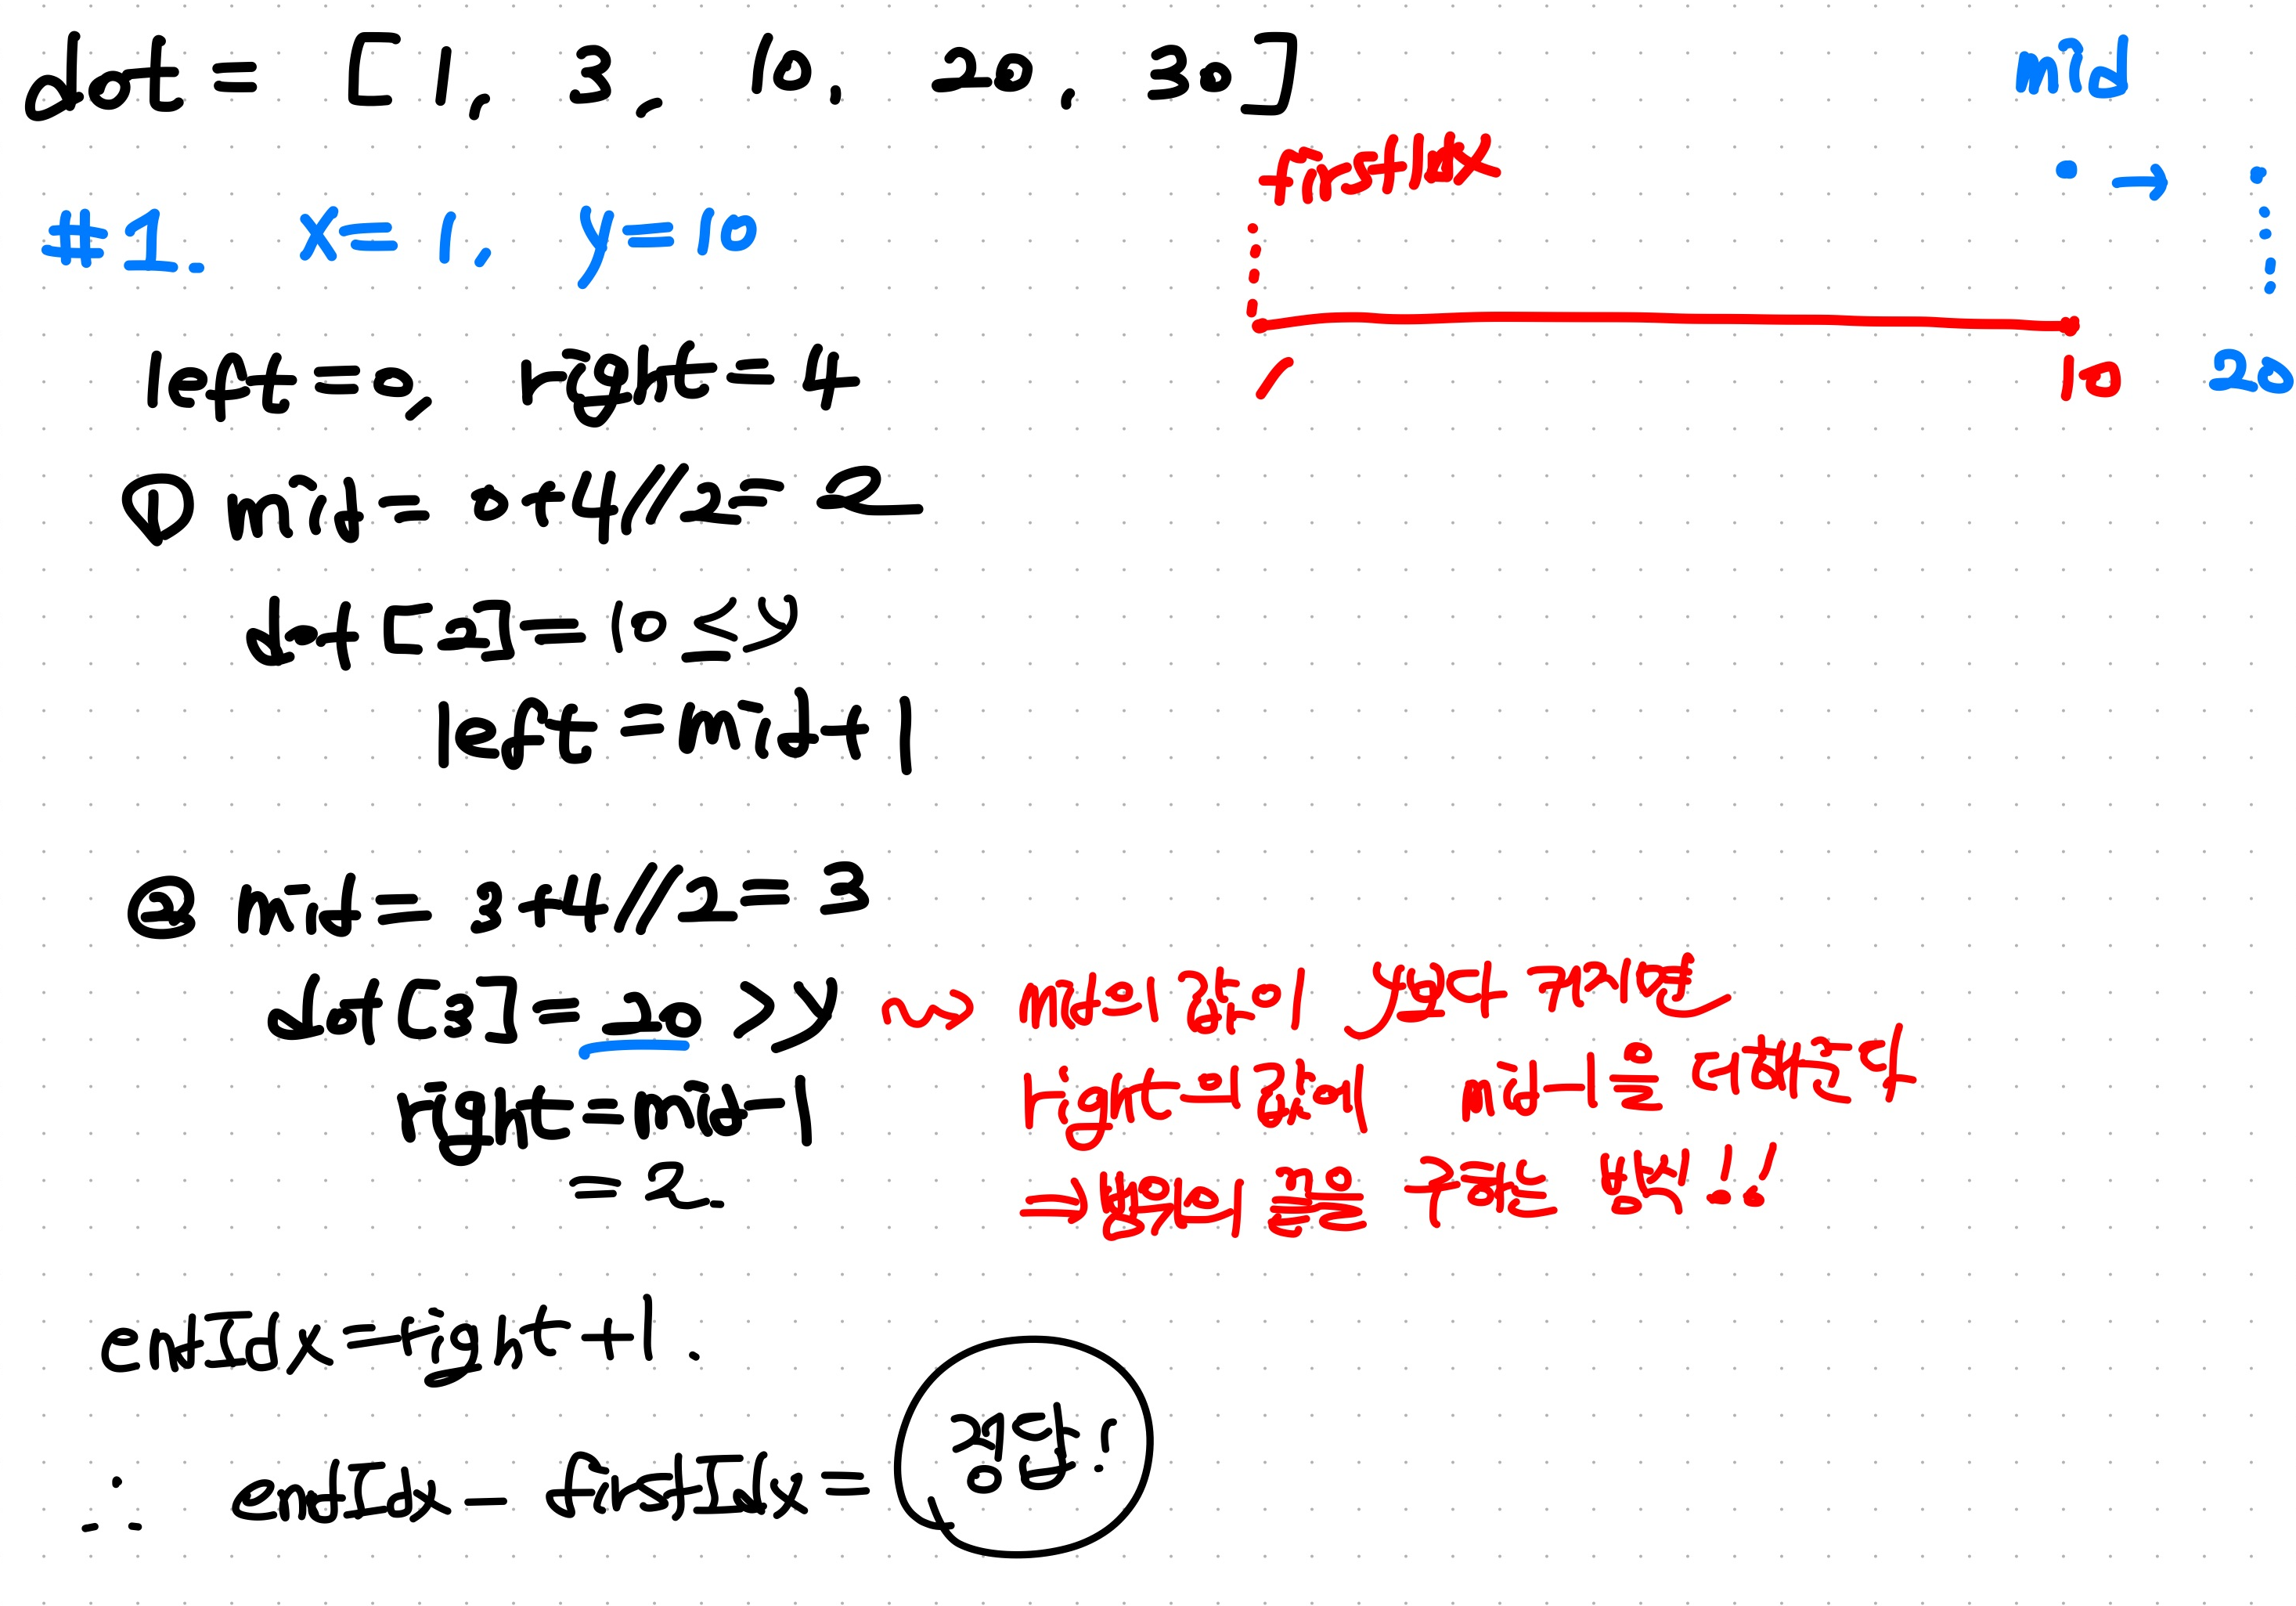 dot = [1, 3, 10, 20, 30]
mid
firstIdx
#1. x=1, y=10
1 10 20
left=0, right=4
① mid = 0+4//2 = 2
dot[2]=10 ≤ y
left = mid+1
② mid = 3+4//2 = 3
dot[3] = 20 > y mid의 값이 y보다 커지면
right = mid-1 right의 값에 mid-1을 대입한다
= 2. ⇒ 범위의 끝을 구하는 방법!!
endIdx = right+1.
∴ endIdx - firstIdx = 정답!